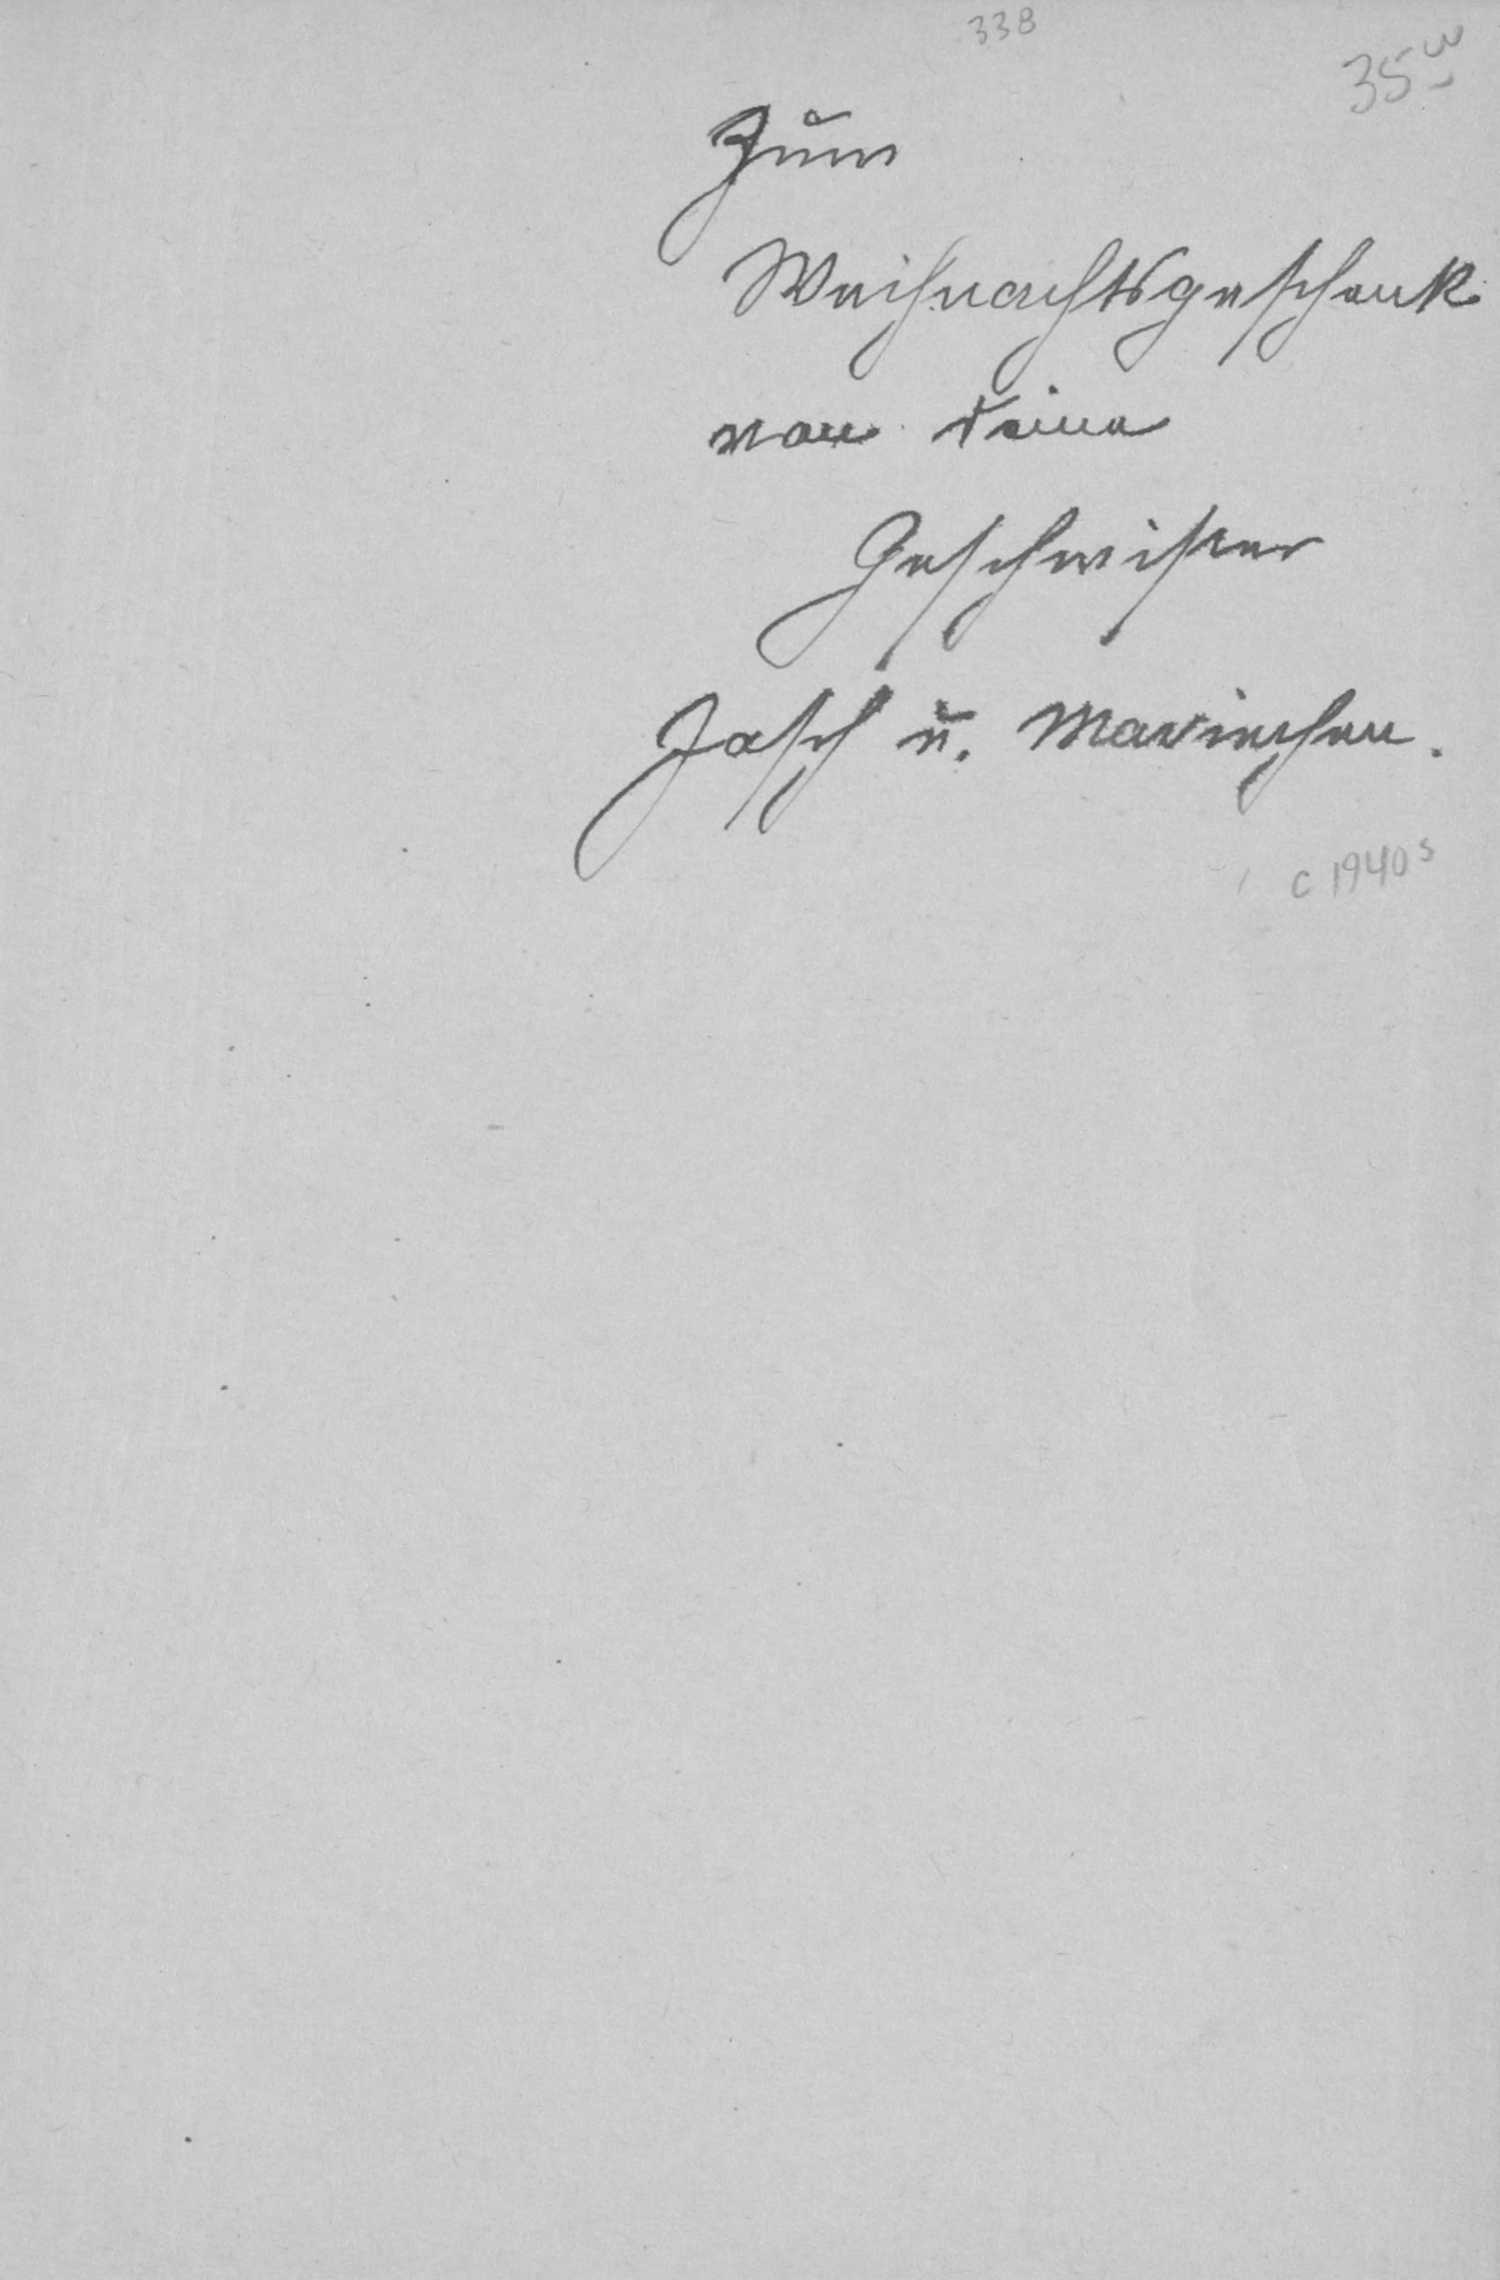 338
35
Zum
Weihnachtsgeschenk
von deine
Geschwister
Jasch u. Mariechen.
c 1940s